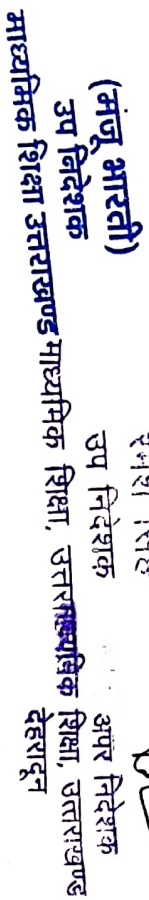 (मंजू भारती)
उप निदेशक
माध्यमिक शिक्षा उत्तराखण्ड
उप निदेशक
माध्यमिक शिक्षा,
अपर निदेशक
शिक्षा, उत्तराखण्ड
देहरादून